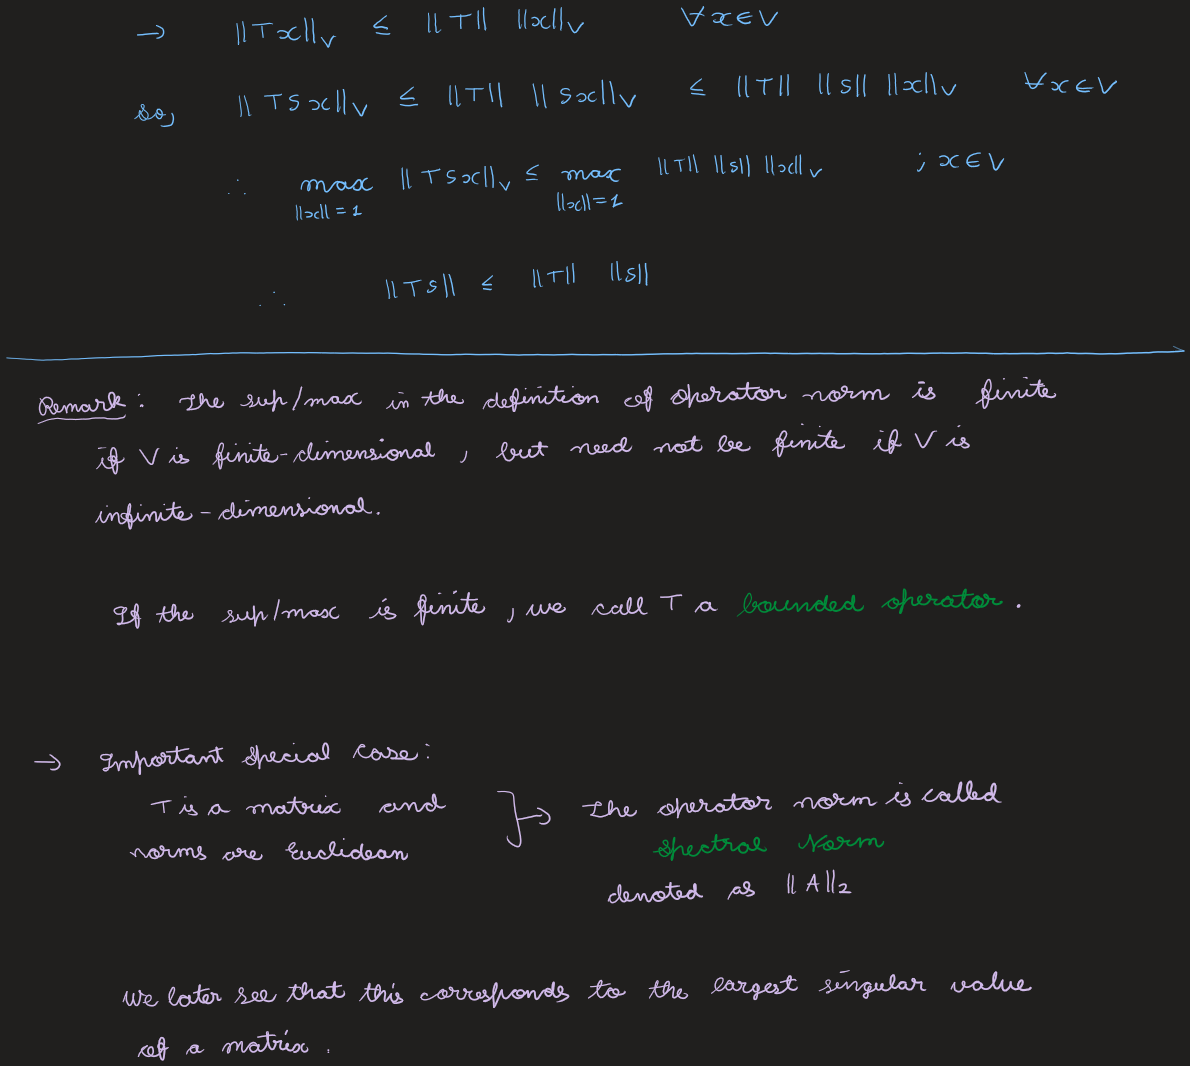 → ||Tx||_V ≤ ||T|| ||x||_V ∀x∈V
so, ||TSx||_V ≤ ||T|| ||Sx||_V ≤ ||T|| ||S|| ||x||_V ∀x∈V
∴ max_{||x||=1} ||TSx||_V ≤ max_{||x||=1} ||T|| ||S|| ||x||_V ; x∈V
∴ ||TS|| ≤ ||T|| ||S||
Remark: The sup/max in the definition of operator norm is finite
if V is finite-dimensional, but need not be finite if V is
infinite-dimensional.
If the sup/max is finite, we call T a bounded operator.
→ Important Special Case:
T is a matrix and
norms are Euclidean
} → The operator norm is called
Spectral Norm
denoted as ||A||_2
We later see that this corresponds to the largest singular value
of a matrix.